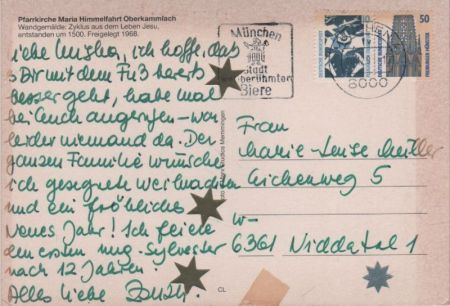 Pfarrkirche Maria Himmelfahrt Oberkammlach
Wandgemälde: Zyklus aus dem Leben Jesu,
entstanden um 1500. Freigelegt 1968.
liebe ich hoffe, daß
es Dir mit dem Fuß bereits
besser geht, habe mal
bei Euch angerufen - war
leider niemand da. Der
ganzen Familie wünsche
ich gesegnete Weihnachten
und ein fröhliches
Neues Jahr! Ich feiere
den ersten Sylvester
nach 12 Jahren.
Alles liebe
München
Stadt
berühmter
Biere
8000
50
Frau
Marie-Luise Müller
Eichenweg 5
W-
6361 Niddatal 1
CL